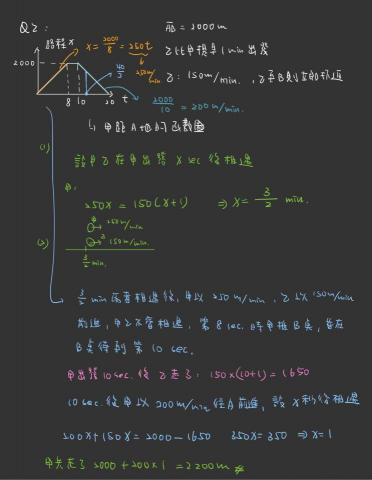 Q2:
AB = 2000 m
路程 x
x = 2000/8 = 250 t
250 m/min
乙比甲提早 1 min 出發
2000
乙: 150 m/min.
8 10 20 t
2000/10 = 200 m/min.
(1)
設甲乙在甲出發 x sec 後相遇
甲:
250x = 150(x+1) ⇒ x = 3/2 min.
→ 250 m/min
(2)
→ 150 m/min.
3/2 min.
3/2 min 兩者相遇後, 甲以 250 m/min, 乙以 150 m/min
前進, 甲乙不會相遇, 第 8 sec. 時甲抵 B 點, 並在
B 點待到第 10 sec.
甲出發 10 sec. 後 乙走了: 150×(10+1) = 1650
10 sec. 後甲以 200 m/min 往 A 前進, 設 x 秒後相遇
200x + 150x = 2000 - 1650 350x = 350 ⇒ x = 1
甲共走了 2000 + 200×1 = 2200 m